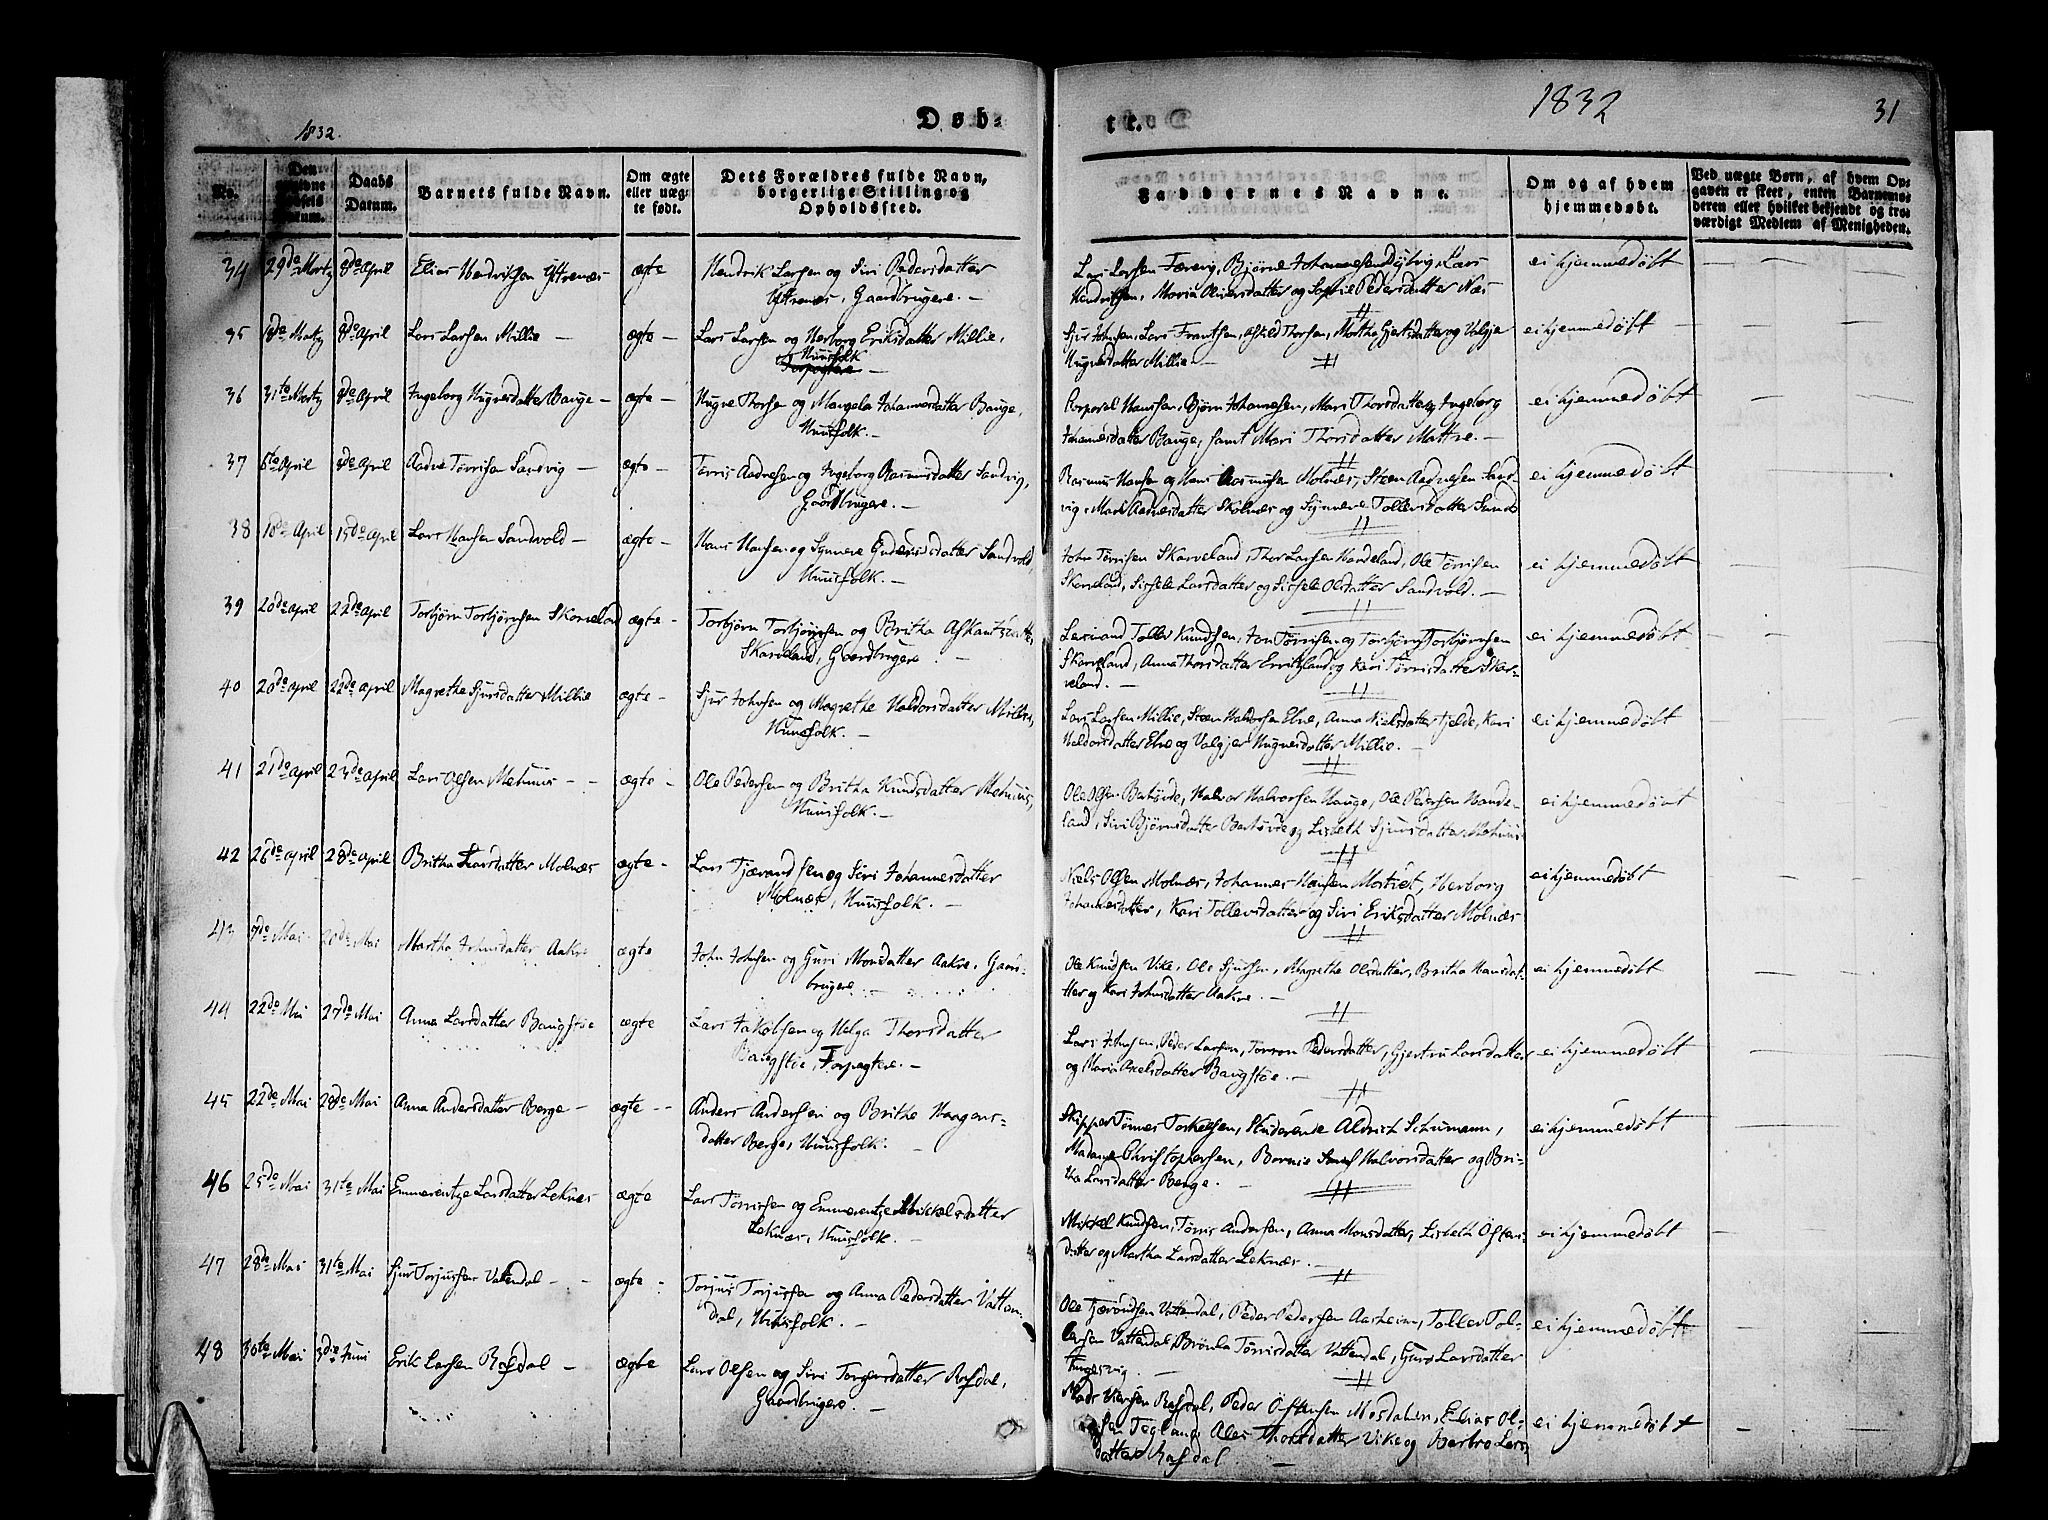 1832.
Døb-
te.
1832
31
No.
Den
Datum.
Daabs
Datum.
Barnets fulde Navn.
Om ægte
eller uæg-
te født.
Dets Forældres fulde Navn,
borgerlige Stilling og
Opholdssted.
Faddernes Navne.
Om og af hvem
hjemmedøbt.
Ved uægte Børn, af hvem Op-
gaven er skeet, enten Barnemo-
deren eller hvilket bekjendt og tro-
værdigt Medlem af Menigheden.
34 29de Martz 8de April Elias Hendriksen Yttrenæs ægte Hendrik Larsen og Siri Pedersdatter
Yttrenæs, Gaardbrugere. —
Lars Larsen Færevig, Bjørne Johannesen Lars
Hendriksen, Maria Oliversdatter og Sophie Pedersdatter Næs
ei hjemmedøbt — — —
35 8de April Lars Larsen Millie — ægte — Lars Larsen og Herborg Eriksdatter Millie,
Huusfolk —
Sjur Johnsen, Lars Frantsen, Thorsen, Martha Gjertsdatter og Valgjer
Hugnesdatter Millie —
ei hjemmedøbt — — —
36 31te Martz 8de April Ingeborg Hugnesdatter Bauge — ægte — Hugne Thorsen og Mangela Johannesdatter Bauge,
Huusfolk. —
Corporal Hansen, Bjørn Johannesen, Mari Thorsdatter og Ingeborg
Johannesdatter Bauge, samt Mari Thorsdatter Mattre. —
ei hjemmedøbt
37 6te April 8de April Aadne Tørrisen Sandvig — ægte — Tørris Aadnesen og Ingeborg Rasmusdatter Sandvig,
Gaardbrugere. —
Rasmus Hansen og Hans Rasmusen Molnæs, Steen Aadnesen Sand-
vig, Aadnesdatter Skolnæs og Synneve Tollevsdatter
ei hjemmedøbt
38 10de April 15de April Lars Hansen Sandvold — ægte — Hans Hansen og Synneve datter Sandvold,
Huusfolk. —
John Tørrisen Skarveland, Thor Larsen Handeland, Ole Tørrisen
Skarveland, Sissele Larsdatter og Sissele Olsdatter Sandvold. —
ei hjemmedøbt
39 20de April 22de April Torbjørn Torbjørnsen Skarveland ægte — Torbjørn Torbjørnsen og Britha
Skarveland, Gaardbrugere. —
Lensmand Tollev Knudsen, Jon Tørrisen og Torbjørn Torbjørnsen
Skarveland, Anna Thorsdatter og Kari Tørrisdatter Skar-
veland. —
ei hjemmedøbt
40 20de April 22de April Magrethe Sjursdatter Millie ægte — Sjur Johnsen og Magrethe Haldorsdatter Millie,
Huusfolk. —
Lars Larsen Millie, Steen Haldorsen Elve, Anna Nielsdatter Fjelde, Kari
Haldorsdatter Elve og Valgjer Hugnesdatter Millie. —
ei hjemmedøbt
41 21de April 23de April Lars Olsen Mehuus — — ægte — Ole Pedersen og Britha Knudsdatter Mehuus,
Huusfolk. —
Ole Olsen Halvor Halvorsen Hauge, Ole Pedersen Hande-
land, Siri Bjørnsdatter og Lisbeth Sjursdatter Mehuus
ei hjemmedøbt
42 26de April 28de April Britha Larsdatter Molnæs ægte — Lars Tjærandsen og Siri Johannesdatter
Molnæs, Huusfolk. —
Niels Olsen Molnæs, Johannes Hansen Herborg
Johannesdatter, Kari Tollevsdatter og Siri Eriksdatter Molnæs
ei hjemmedøbt
43 7de Mai 20de Mai Martha Johnsdatter Aakre ægte John Johnsen og Guri Monsdatter Aakre, Gaard-
brugere. —
Ole Knudsen Vike, Ole Sjursen, Magrethe Olsdatter, Britha Hansdat-
ter og Kari Johnsdatter Aakre. —
ei hjemmedøbt
44 22de Mai 27de Mai Anna Larsdatter Baugstøe ægte Lars Jakobsen og Helga Thorsdatter
Baugstøe, Forpagtere. —
Lars Johnsen, Peder Larsen, Torron Pedersdatter, Gjertru Larsdatter
og Maria Axelsdatter Baugstøe. —
ei hjemmedøbt
45 22de Mai 28de Mai Anna Andersdatter Berge — ægte — Anders Andersen og Britha Haagens-
datter Berge, Huusfolk. —
Skipper Tønnes Torkelsen, Studerende Aldrich Schumann,
Madame Christophersen, Halvorsdatter og Bri-
tha Larsdatter Berge. —
ei hjemmedøbt
46 25de Mai 31te Mai Emmerentze Larsdatter Leknæs ægte Lars Tørrissen og Emmerentze Mikkelsdatter
Leknæs, Huusfolk. —
Mikkel Knudsen, Tørris Andersen, Anna Monsdatter, Lisbeth Østens-
datter og Martha Larsdatter Leknæs. —
ei hjemmedøbt
47 28de Mai 31te Mai Sjur Torjussen Vattendal — — ægte — Torjus Torjussen og Anna Pedersdatter Vatten-
dal, Huusfolk. —
Ole Tjærandsen Vattendal, Peder Pedersen Aarheim, Tollev Tol-
levsen Vattendal, Brønla Tørrisdatter Vattendal, Guro Larsdatter
Tungesvig. —
ei hjemmedøbt
48 30te Mai 3die Juni Erik Larsen Røfsdal — ægte Lars Olsen og Siri Torgersdatter Røfsdal,
Gaardbrugere. —
Mads Iversen Røfsdal, Peder Østensen Mosdalen, Elias Ol-
sen Tegland, Ales Thorsdatter Vike og Barbro Lars-
datter Røfsdal —
ei hjemmedøbt